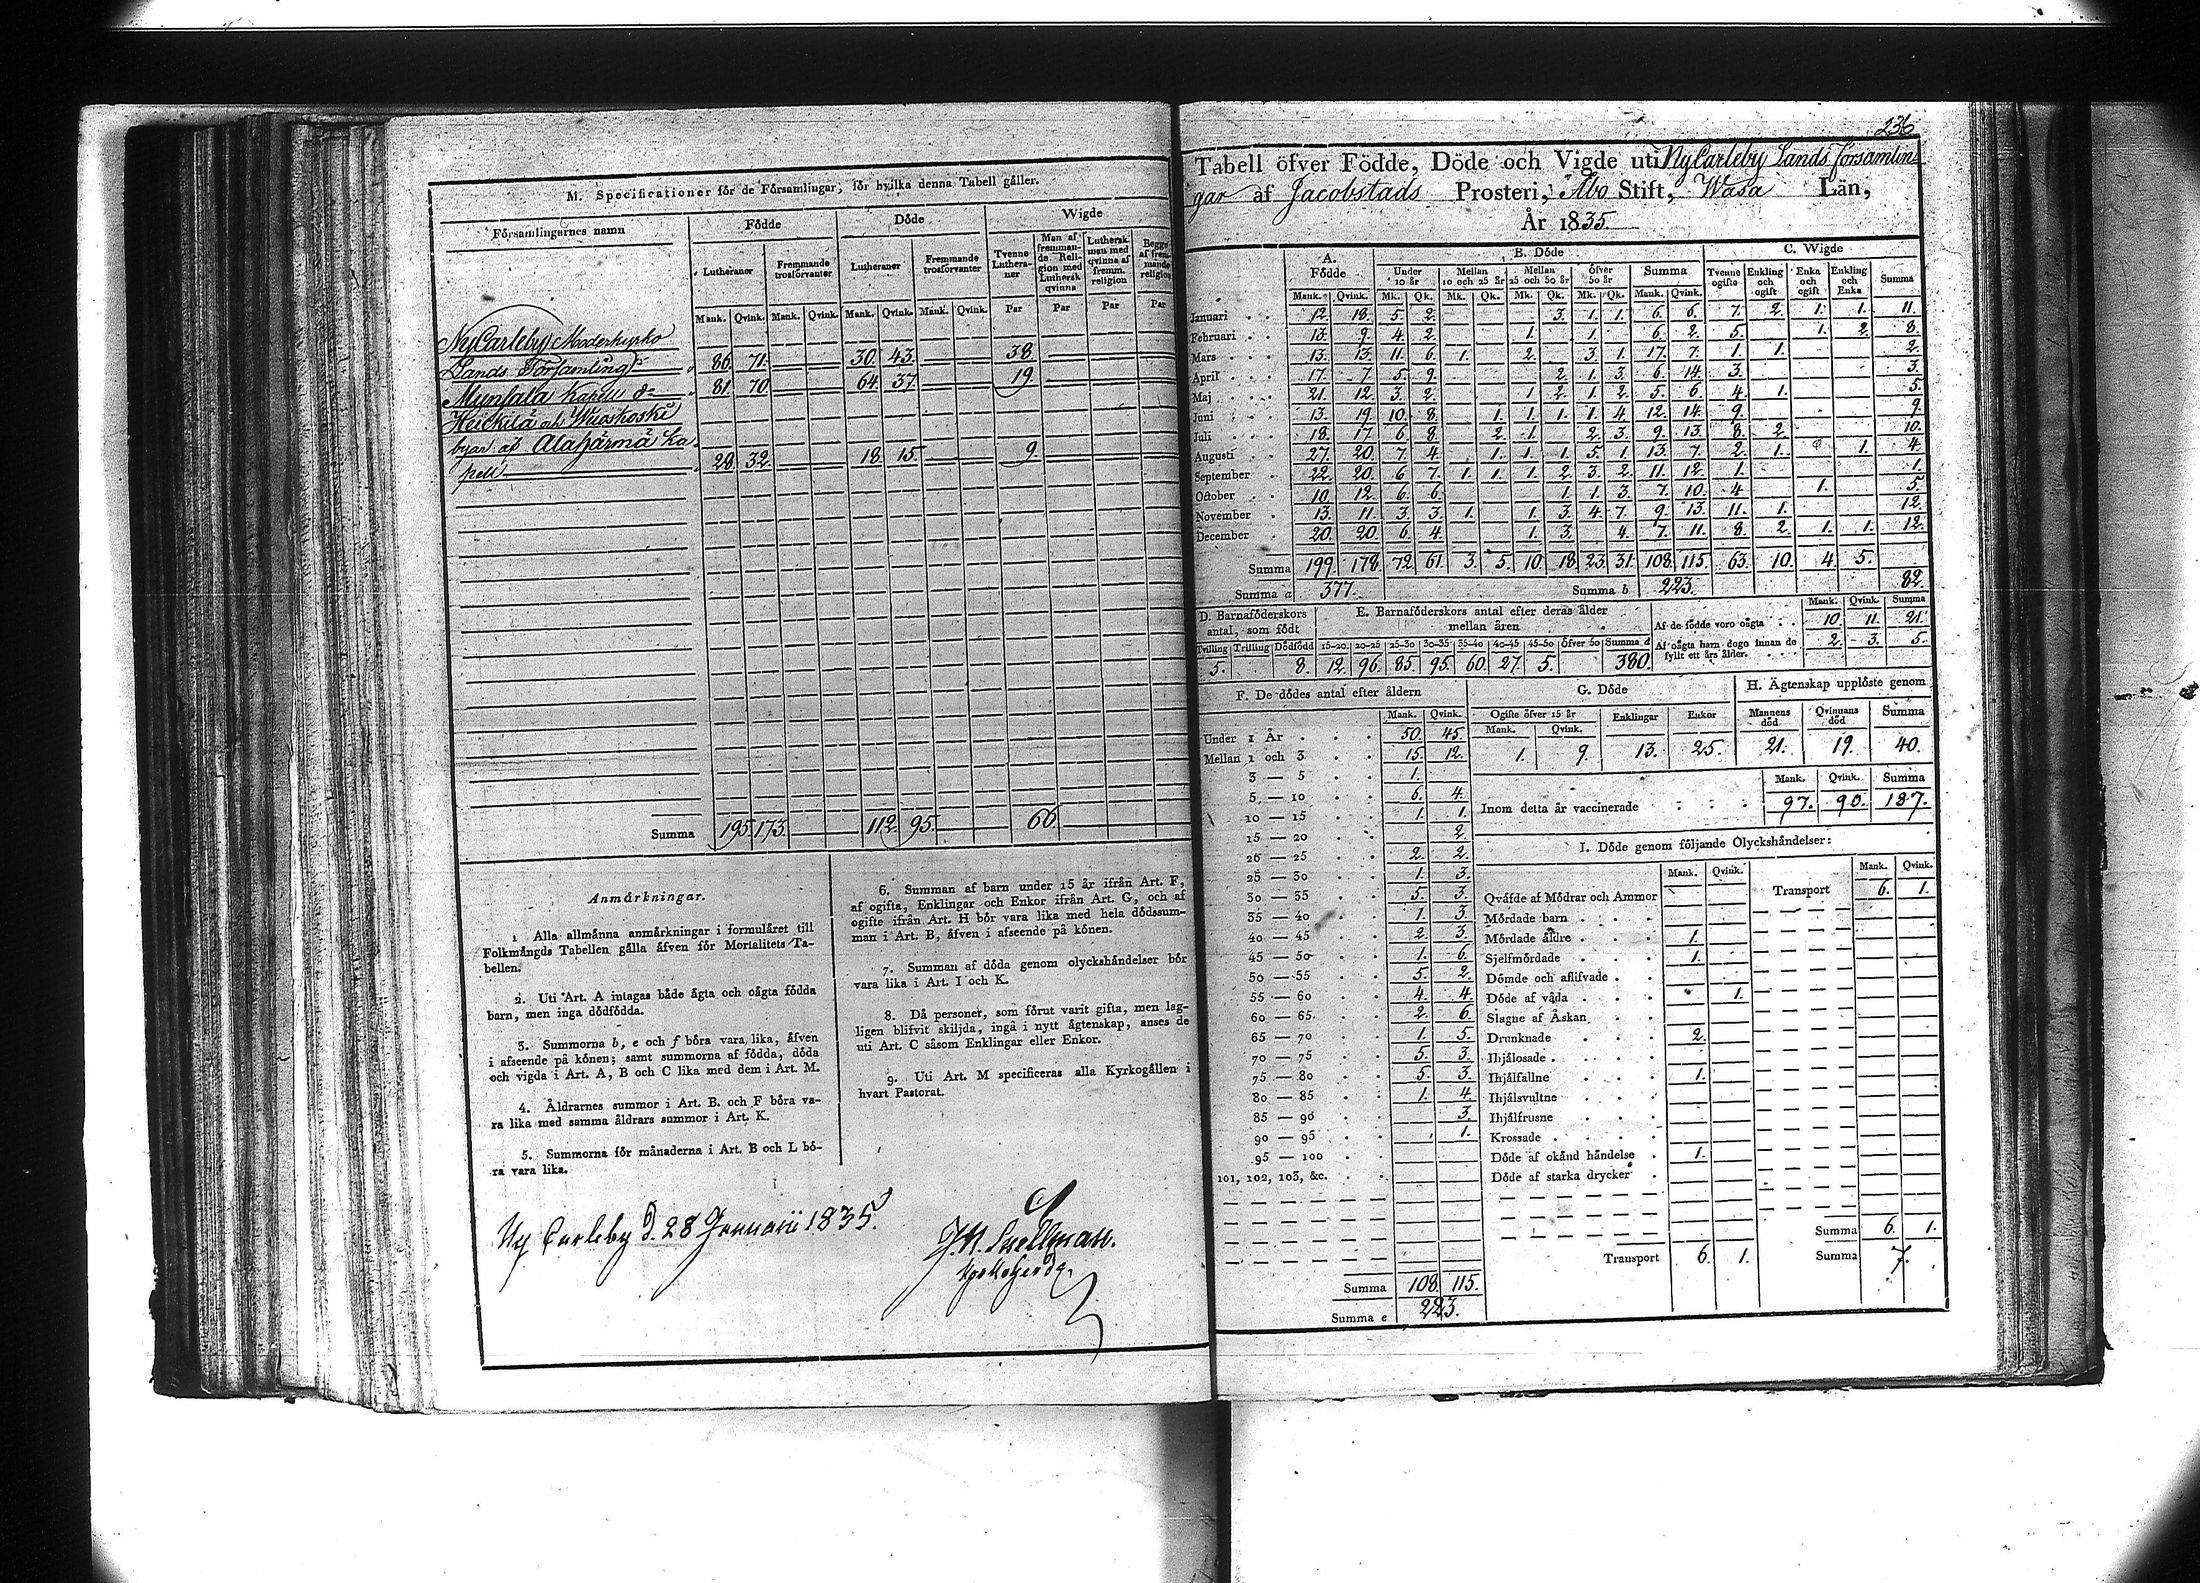 M. Specificationer för de Församlingar, för hvilka denna Tabell gäller.
Församlingarnes namn | Födde | Döde | Wigde
Lutheraner | Fremmande trosförvanter | Lutheraner | Fremmande trosförvanter | Tvenne Lutheraner | Man af fremmande Religion med Luthersk qvinna | Luthersk man med qvinna af fremm. religion | Begge af fremmande religion
Mank. | Qvink. | Mank. | Qvink. | Mank. | Qvink. | Mank. | Qvink. | Par | Par | Par | Par
NyCarleby Moderkyrko
Lands Församling | 86. | 71. | 30. | 43. | 38.
Munsala Kapell | 81. | 70. | 64. | 37. | 19.
Heickilä och Wuoskoski
byar af Alahärmä Ka-
pell | 28. | 32. | 18. | 15. | 9.
Summa | 195. | 173. | 112. | 95. | 66.
Anmärkningar.
1 Alla allmänna anmärkningar i formuläret till
Folkmängds Tabellen gälla äfven för Mortalitets Ta-
bellen.
2. Uti Art. A intagas både ägta och oägta födda
barn, men inga dödfödda.
3. Summorna b, e och f böra vara lika, äfven
i afseende på könen; samt summorna af födda, döda
och vigda i Art. A, B och C lika med dem i Art. M.
4. Åldrarnes summor i Art. B. och F böra va-
ra lika med samma åldrars summor i Art. K.
5. Summorna för månaderna i Art. B och L bö-
ra vara lika.
6. Summan af barn under 15 år ifrån Art. F,
af ogifta, Enklingar och Enkor ifrån Art. G, och af
ogifte ifrån Art. H bör vara lika med hela dödssum-
man i Art. B, äfven i afseende på könen.
7. Summan af döda genom olyckshändelser bör
vara lika i Art. I och K.
8. Då personer, som förut varit gifta, men lag-
ligen blifvit skiljda, ingå i nytt ägtenskap, anses de
uti Art. C såsom Enklingar eller Enkor.
9. Uti Art. M specificeras alla Kyrkogällen i
hvart Pastorat.
Ny Carleby d. 28 Januarii 1835.
Snellman.
Kyrkoherde.
236
Tabell öfver Födde, Döde och Vigde uti NyCarleby Lands församlin-
gar af Jacobstads Prosteri, Åbo Stift, Wasa Län,
År 1835.
A. Födde | B. Döde | C. Wigde
Under 10 år | Mellan 10 och 25 år | Mellan 25 och 50 år | Öfver 50 år | Summa | Tvenne ogifte | Enkling och ogift | Enka och ogift | Enkling och Enka | Summa
Mank. | Qvink. | Mk. | Qk. | Mk. | Qk. | Mk. | Qk. | Mk. | Qk. | Mank. | Qvink.
Januari | 12. | 18. | 5. | 2. | 3. | 1. | 1. | 6. | 6. | 7. | 2. | 1. | 1. | 11.
Februari | 13. | 9. | 4. | 2. | 1. | 1. | 6. | 2. | 5. | 1. | 2. | 8.
Mars | 13. | 13. | 11. | 6. | 1. | 2. | 3. | 1. | 17. | 7. | 1. | 1. | 2.
April | 17. | 7. | 5. | 9. | 2. | 1. | 3. | 6. | 14. | 3. | 3.
Maj | 21. | 12. | 3. | 2. | 1. | 2. | 1. | 2. | 5. | 6. | 4. | 1. | 5.
Juni | 13. | 19. | 10. | 8. | 1. | 1. | 1. | 1. | 4. | 12. | 14. | 9. | 9.
Juli | 18. | 17. | 6. | 8. | 2. | 1. | 2. | 3. | 9. | 13. | 8. | 2. | 10.
Augusti | 27. | 20. | 7. | 4. | 1. | 1. | 1. | 5. | 1. | 13. | 7. | 2. | 1. | 1. | 4.
September | 22. | 20. | 6. | 7. | 1. | 1. | 1. | 2. | 3. | 2. | 11. | 12. | 1. | 1.
October | 10. | 12. | 6. | 6. | 1. | 1. | 3. | 7. | 10. | 4. | 1. | 5.
November | 13. | 11. | 3. | 3. | 1. | 1. | 3. | 4. | 7. | 9. | 13. | 11. | 1. | 12.
December | 20. | 20. | 6. | 4. | 1. | 3. | 4. | 7. | 11. | 8. | 2. | 1. | 1. | 12.
Summa | 199. | 178. | 72. | 61. | 3. | 5. | 10. | 18. | 23. | 31. | 108. | 115. | 63. | 10. | 4. | 5.
Summa a | 377. | Summa b | 223. | 82.
D. Barnaföderskors antal, som födt | E. Barnaföderskors antal efter deras ålder mellan åren | Mank. | Qvink. | Summa
Tvilling | Trilling | Dödfödd | 15-20. | 20-25 | 25-30 | 30-35 | 35-40 | 40-45 | 45-50 | Öfver 50 | Summa d
5. | 8. | 12. | 96. | 85. | 95. | 60. | 27. | 5. | 380.
Af de födde voro oägta | 10. | 11. | 21.
Af oägta barn dogo innan de fyllt ett års ålder. | 2. | 3. | 5.
F. De dödes antal efter åldern
Mank. | Qvink.
Under 1 År | 50. | 45.
Mellan 1 och 3 | 15. | 12.
3 — 5 | 1.
5 — 10 | 6. | 4.
10 — 15 | 1. | 1.
15 — 20 | 2.
20 — 25 | 2. | 2.
25 — 30 | 1. | 3.
30 — 35 | 5. | 3.
35 — 40 | 1. | 3.
40 — 45 | 2. | 3.
45 — 50 | 1. | 6.
50 — 55 | 5. | 2.
55 — 60 | 4. | 4.
60 — 65 | 2. | 6.
65 — 70 | 1. | 5.
70 — 75 | 5. | 3.
75 — 80 | 5. | 3.
80 — 85 | 1. | 4.
85 — 90 | 3.
90 — 95 | 1.
95 — 100
101, 102, 103, &c.
Summa | 108. | 115.
Summa e | 223.
G. Döde | H. Ägtenskap upplöste genom
Ogifte öfver 15 år | Enklingar | Enkor | Mannens död | Qvinnans död | Summa
Mank. | Qvink.
1. | 9. | 13. | 25. | 21. | 19. | 40.
Mank. | Qvink. | Summa
Inom detta år vaccinerade | 97. | 90. | 187.
I. Döde genom följande Olyckshändelser:
Mank. | Qvink. | Mank. | Qvink.
Qväfde af Mödrar och Ammor | Transport | 6. | 1.
Mördade barn
Mördade äldre | 1.
Sjelfmördade | 1.
Dömde och aflifvade
Döde af våda | 1.
Slagne af Åskan
Drunknade | 2.
Ihjälosade
Ihjälfallne | 1.
Ihjälsvultne
Ihjälfrusne
Krossade
Döde af okänd händelse | 1.
Döde af starka drycker
Summa | 6. | 1.
Transport | 6. | 1. | Summa | 7.